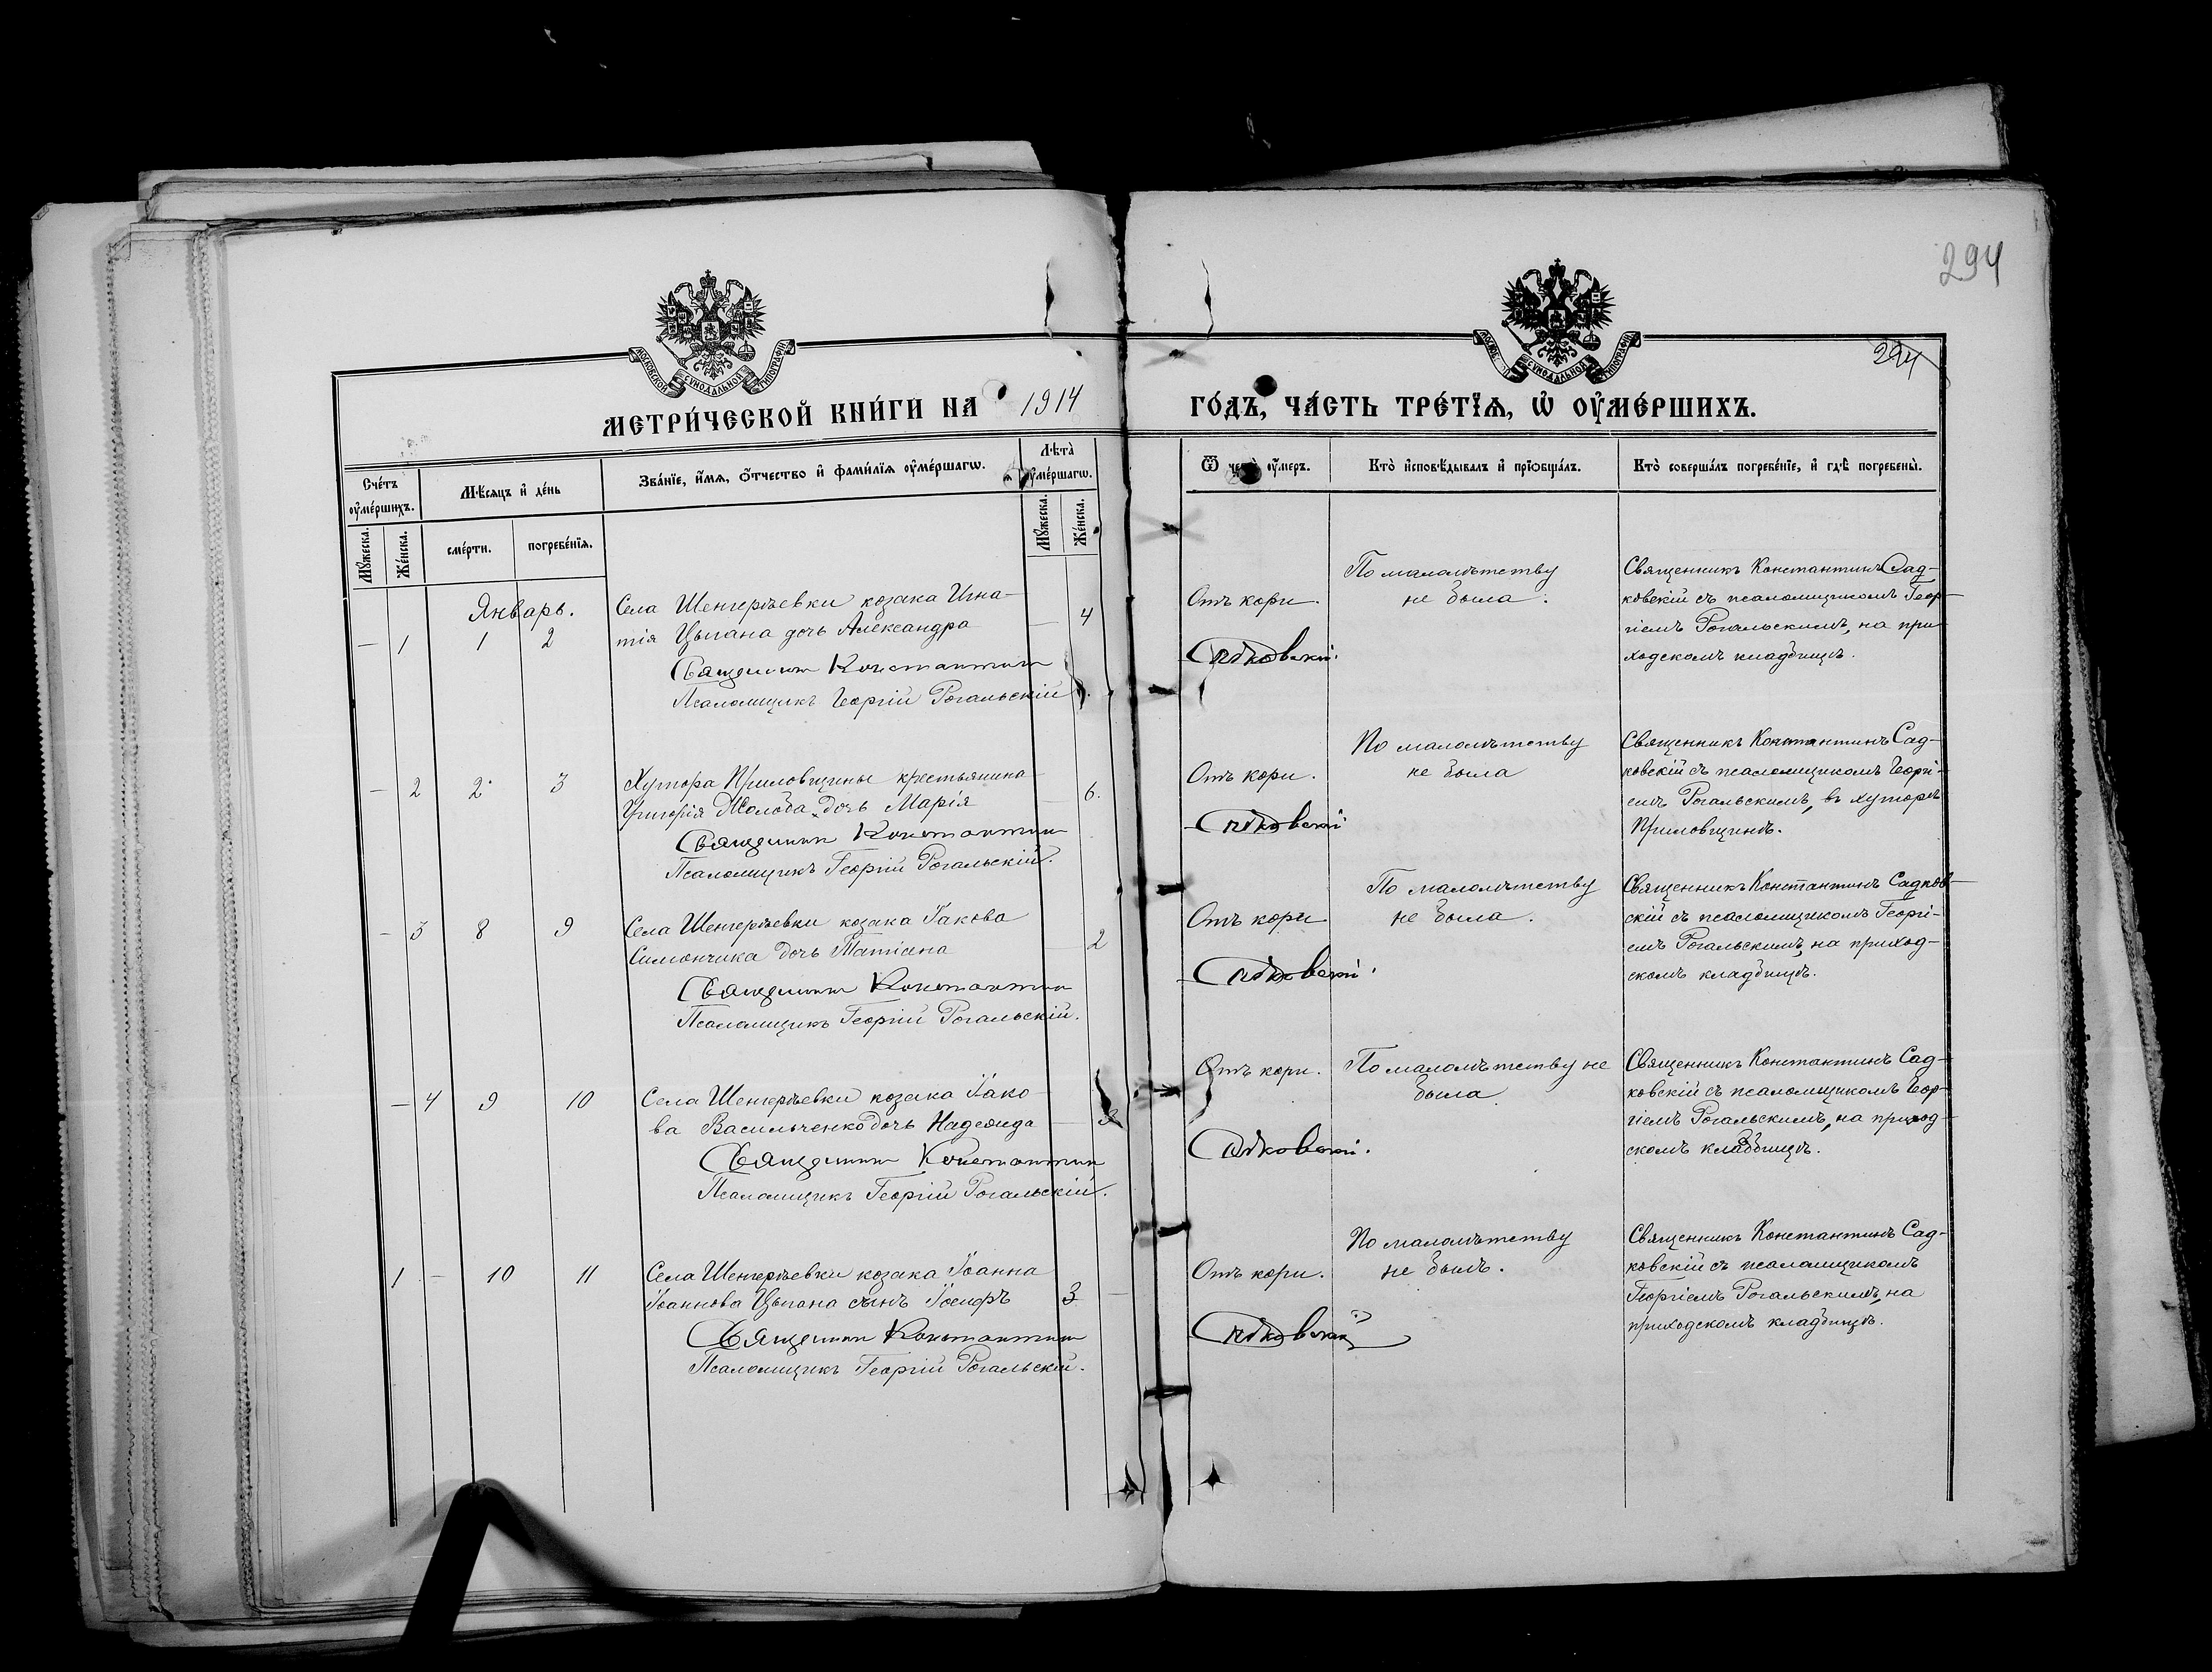 294
294
МОСКОВСКОЙ СУНОДАЛЬНОЙ ТИПОГРАФІИ
МЕТРИ́ЧЕСКОЙ КНИ́ГИ НА 1914 ГО́ДЪ, ЧА́СТЬ ТРЕ́ТЇѦ, Ѡ҆ ОУ҆МЕ́РШИХЪ.
Сче́тъ оу҆ме́ршихъ.
Мꙋ́жеска.
Же́нска.
Мѣ́сѧцъ и҆ де́нь
сме́рти.
погребе́нїѧ.
Зва́нїе, и҆́мѧ, ѻ҆́тчество и҆ фами́лїѧ оу҆ме́ршагѡ.
Лѣ́та̀ оу҆ме́ршагѡ.
Мꙋ́жеска.
Же́нска.
Ѿ чегѡ̀ оу҆́меръ.
Кто̀ и҆сповѣ́дывалъ и҆ прїѡбща́лъ.
Кто̀ соверша́лъ погребе́нїе, и҆ гдѣ̀ погребены̀.
Январь.
— 1 1 2
Села Шенгерѣевки козака Игна-
тія Цыгана дочь Александра — 4
Священник Константин
Псаломщикъ Георгій Рогальскій.
Отъ кори.
Садковскій.
По малолѣтству
не была.
Священникъ Константинъ Сад-
ковскій съ псаломщикомъ Геор-
гіемъ Рогальскимъ, на при-
ходскомъ кладбищѣ.
— 2 2 3
Хутора Приловщины крестьянина
Григорія Жолоба дочь Марія — 6.
Священник Константин
Псаломщикъ Георгій Рогальскій.
Отъ кори.
Садковскій
По малолѣтству
не была
Священникъ Константинъ Сад-
ковскій съ псаломщикомъ Георгі-
емъ Рогальскимъ, въ хуторѣ
Приловщинѣ.
— 3 8 9
Села Шенгерѣевки козака Іакова
Симончика дочь Татіана — 2
Священник Константин
Псаломщикъ Георгій Рогальскій.
Отъ кори
Садковскій.
По малолѣтству
не была.
Священникъ Константинъ Садков-
скій съ псаломщикомъ Георгі-
емъ Рогальскимъ, на приход-
скомъ кладбищѣ.
— 4 9 10
Села Шенгерѣевки козака Іако-
ва Васильченко дочь Надежда —
Священник Константин
Псаломщикъ Георгій Рогальскій.
Отъ кори.
Садковскій.
По малолѣтству не
была
Священникъ Константинъ Сад-
ковскій съ псаломщикомъ Геор-
гіемъ Рогальскимъ, на приход-
скомъ кладбищѣ.
1 — 10 11
Села Шенгерѣевки козака Іоанна
Іоаннова Цыгана сынъ Іосифъ 3 —
Священник Константин
Псаломщикъ Георгій Рогальскій.
Отъ кори.
Садковскій
По малолѣтству
не былъ.
Священникъ Константинъ Сад-
ковскій съ псаломщикомъ
Георгіемъ Рогальскимъ, на
приходскомъ кладбищѣ.